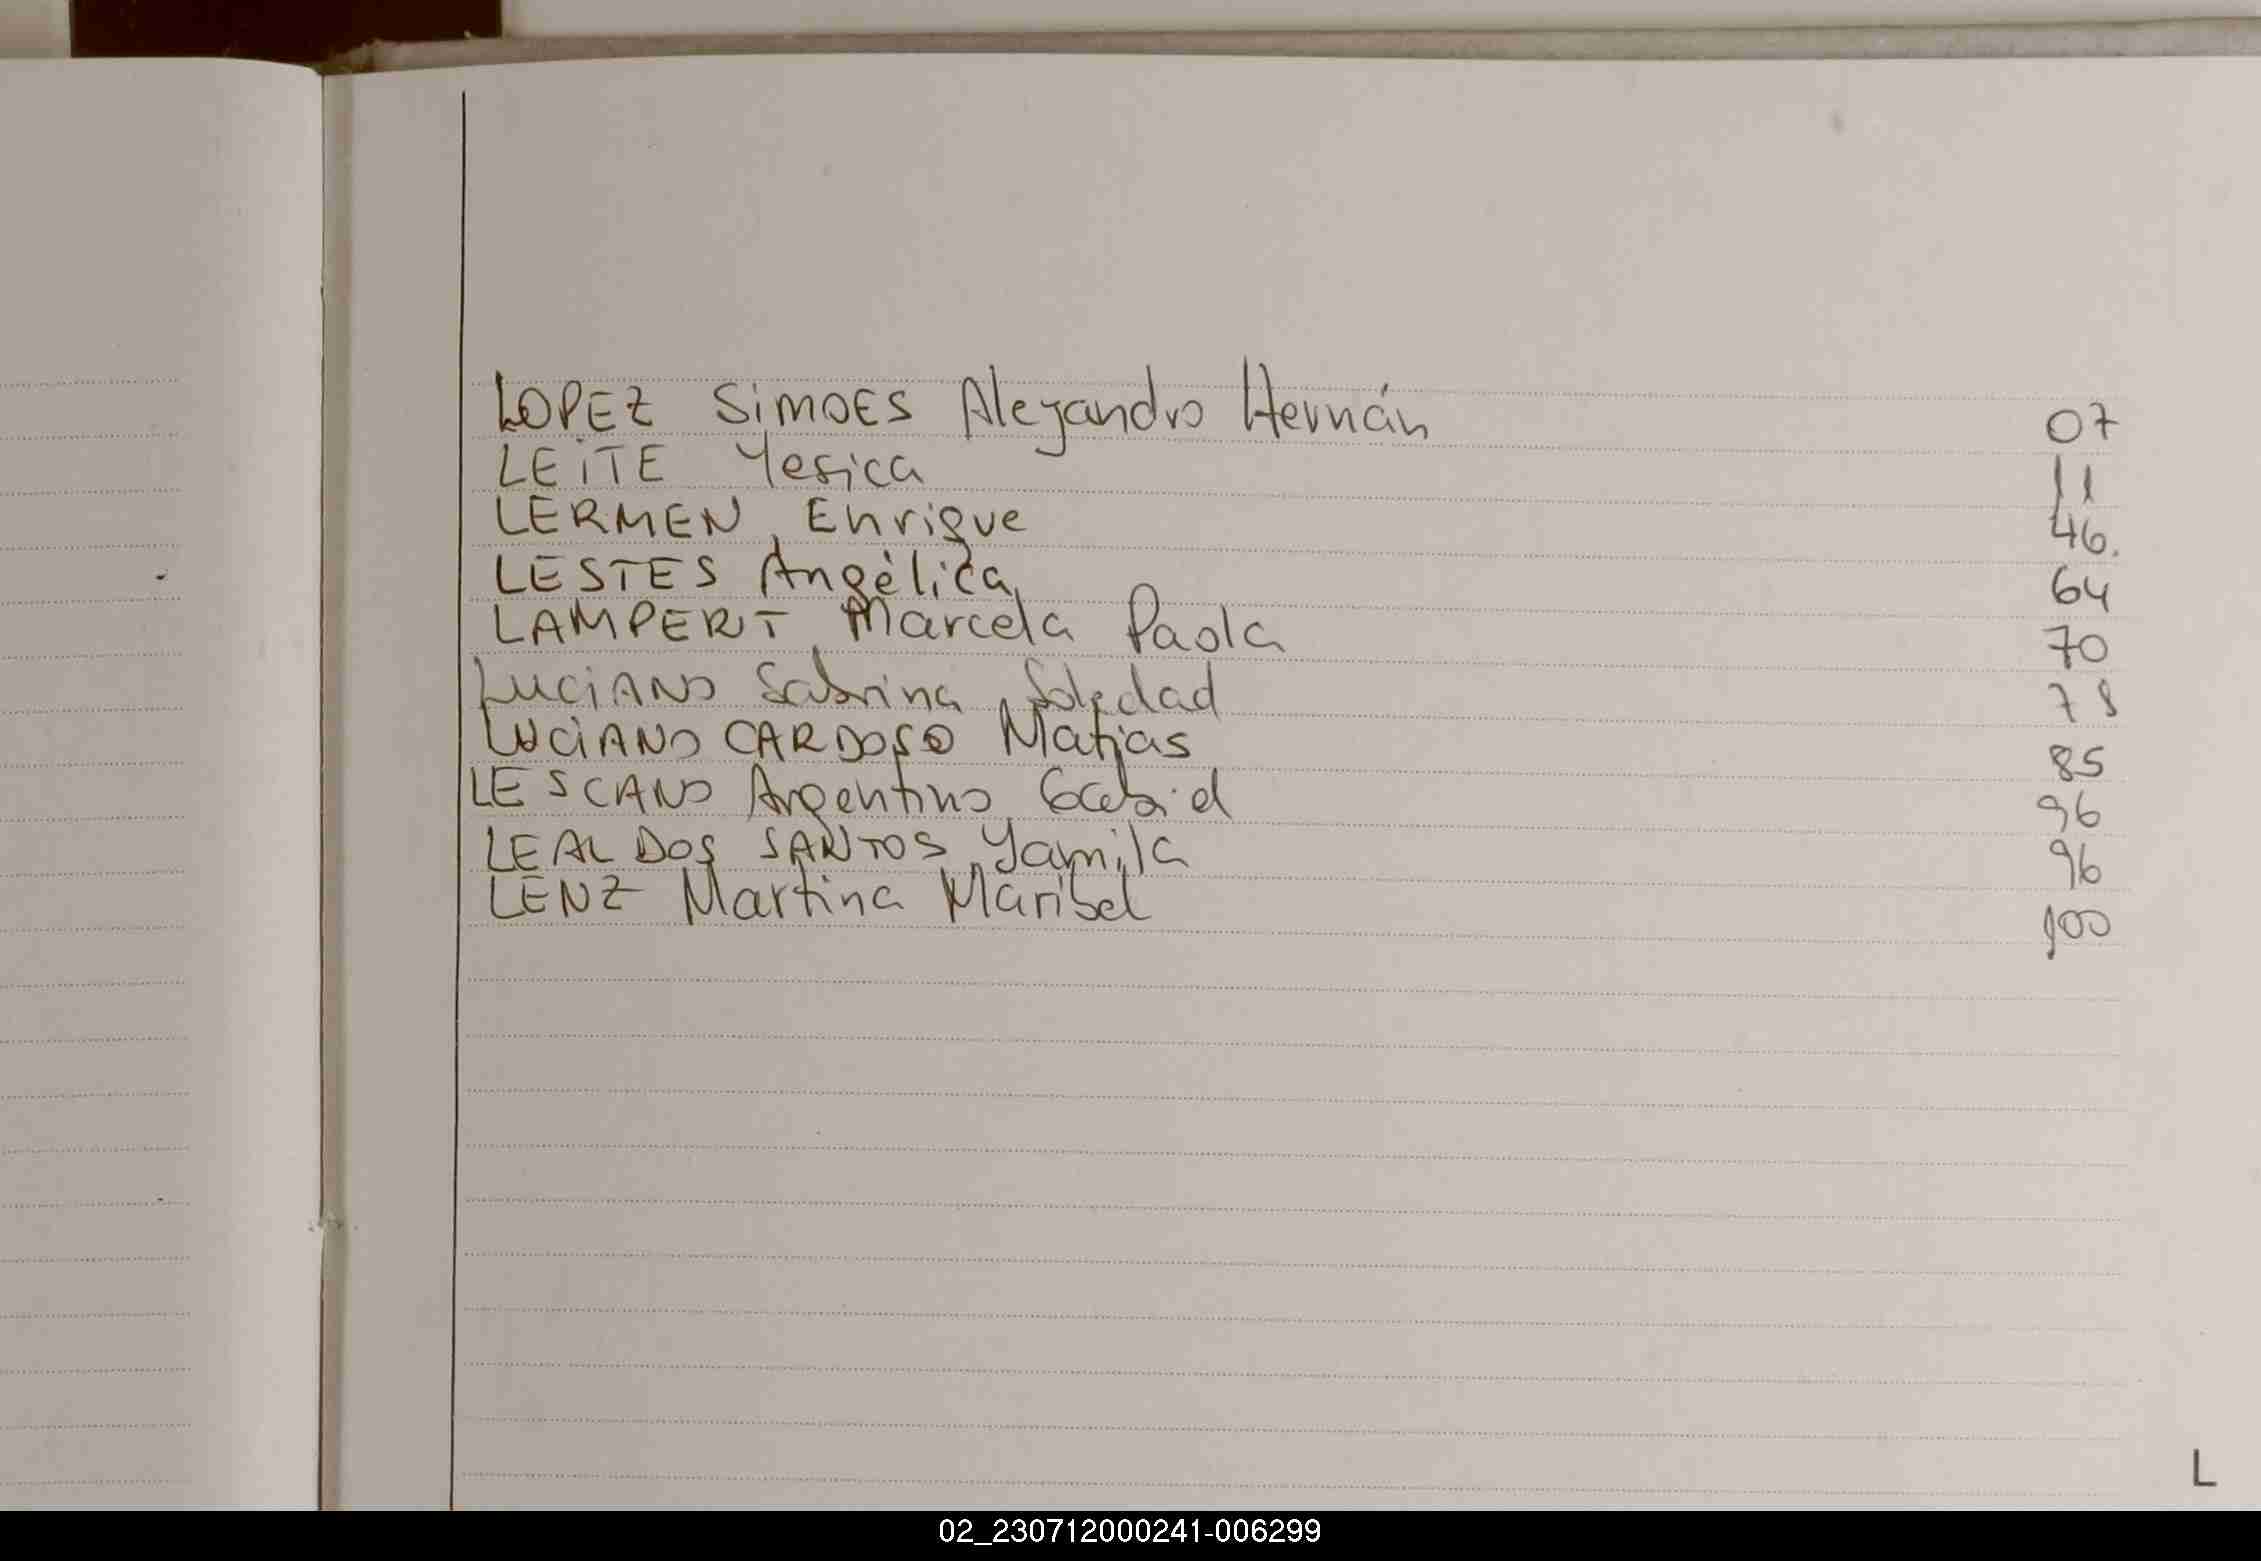 LOPEZ SiMOES Alejandro Hernán 07
LEiTE Yesica 11
LERMEN Enrique 46.
LESTES Angélica 64
LAMPERT Marcela Paola 70
LUCiANO Sabrina Soledad 78
LUCiANO CARDOSO Matias 85
LESCANO Argentino Gabriel 96
LEAL DOS SANTOS Yamila 96
LENZ Martina Maribel 100
L
02_230712000241-006299